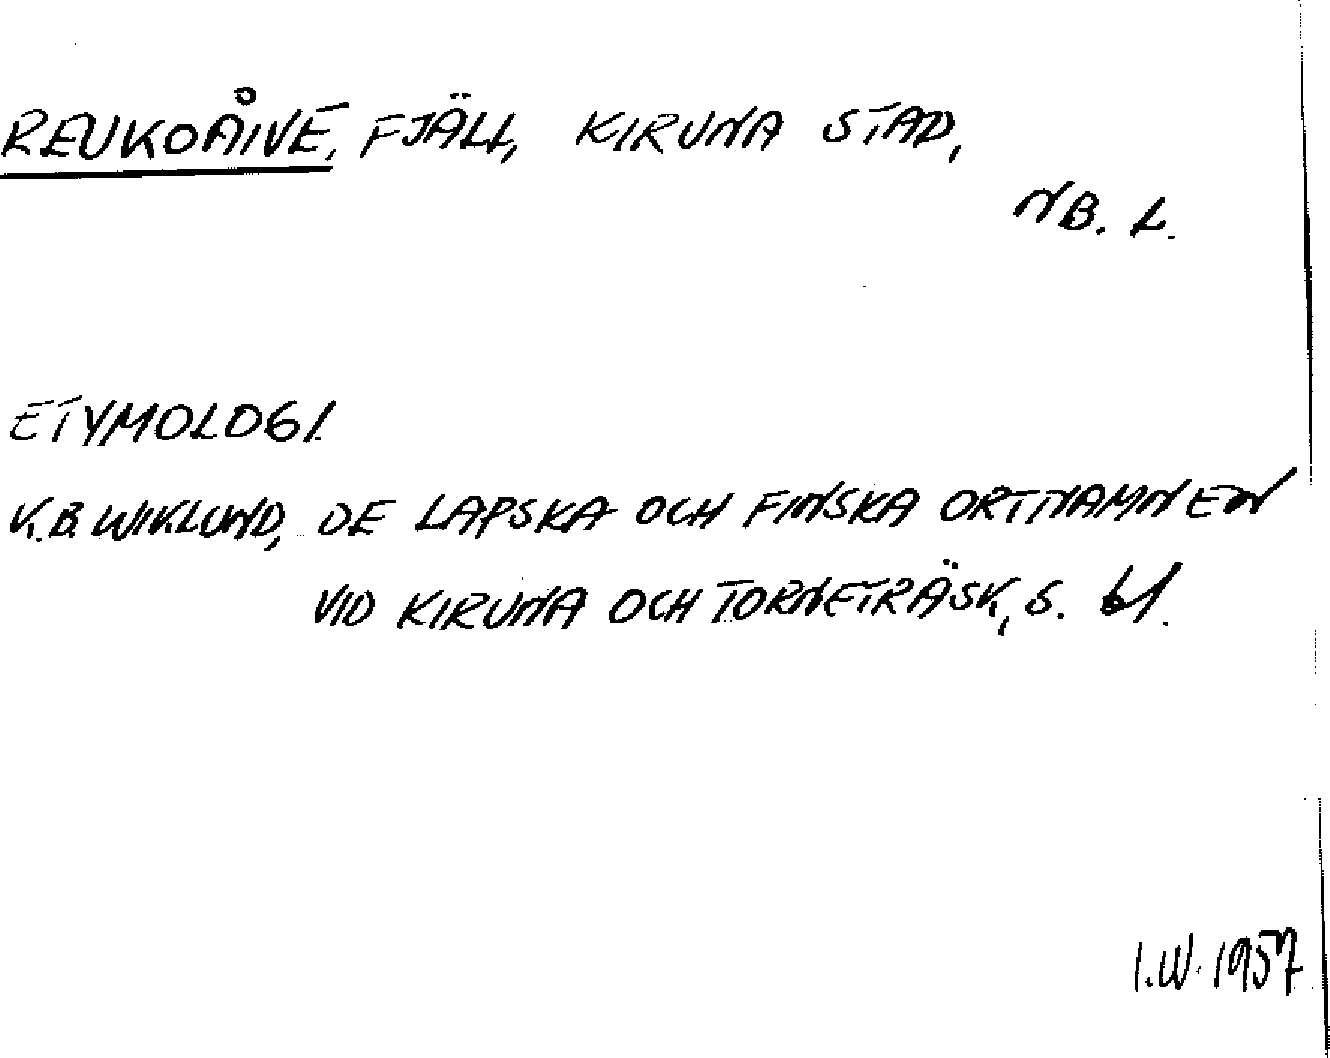 REUKOÅIVE, FJÄLL, KIRUNA STAD,
NB. L.
ETYMOLOGI
K.B. WIKLUND, DE LAPSKA OCH FINSKA ORTNAMNEN
VID KIRUNA OCH TORNETRÄSK, S. 61.
I.W. 1957